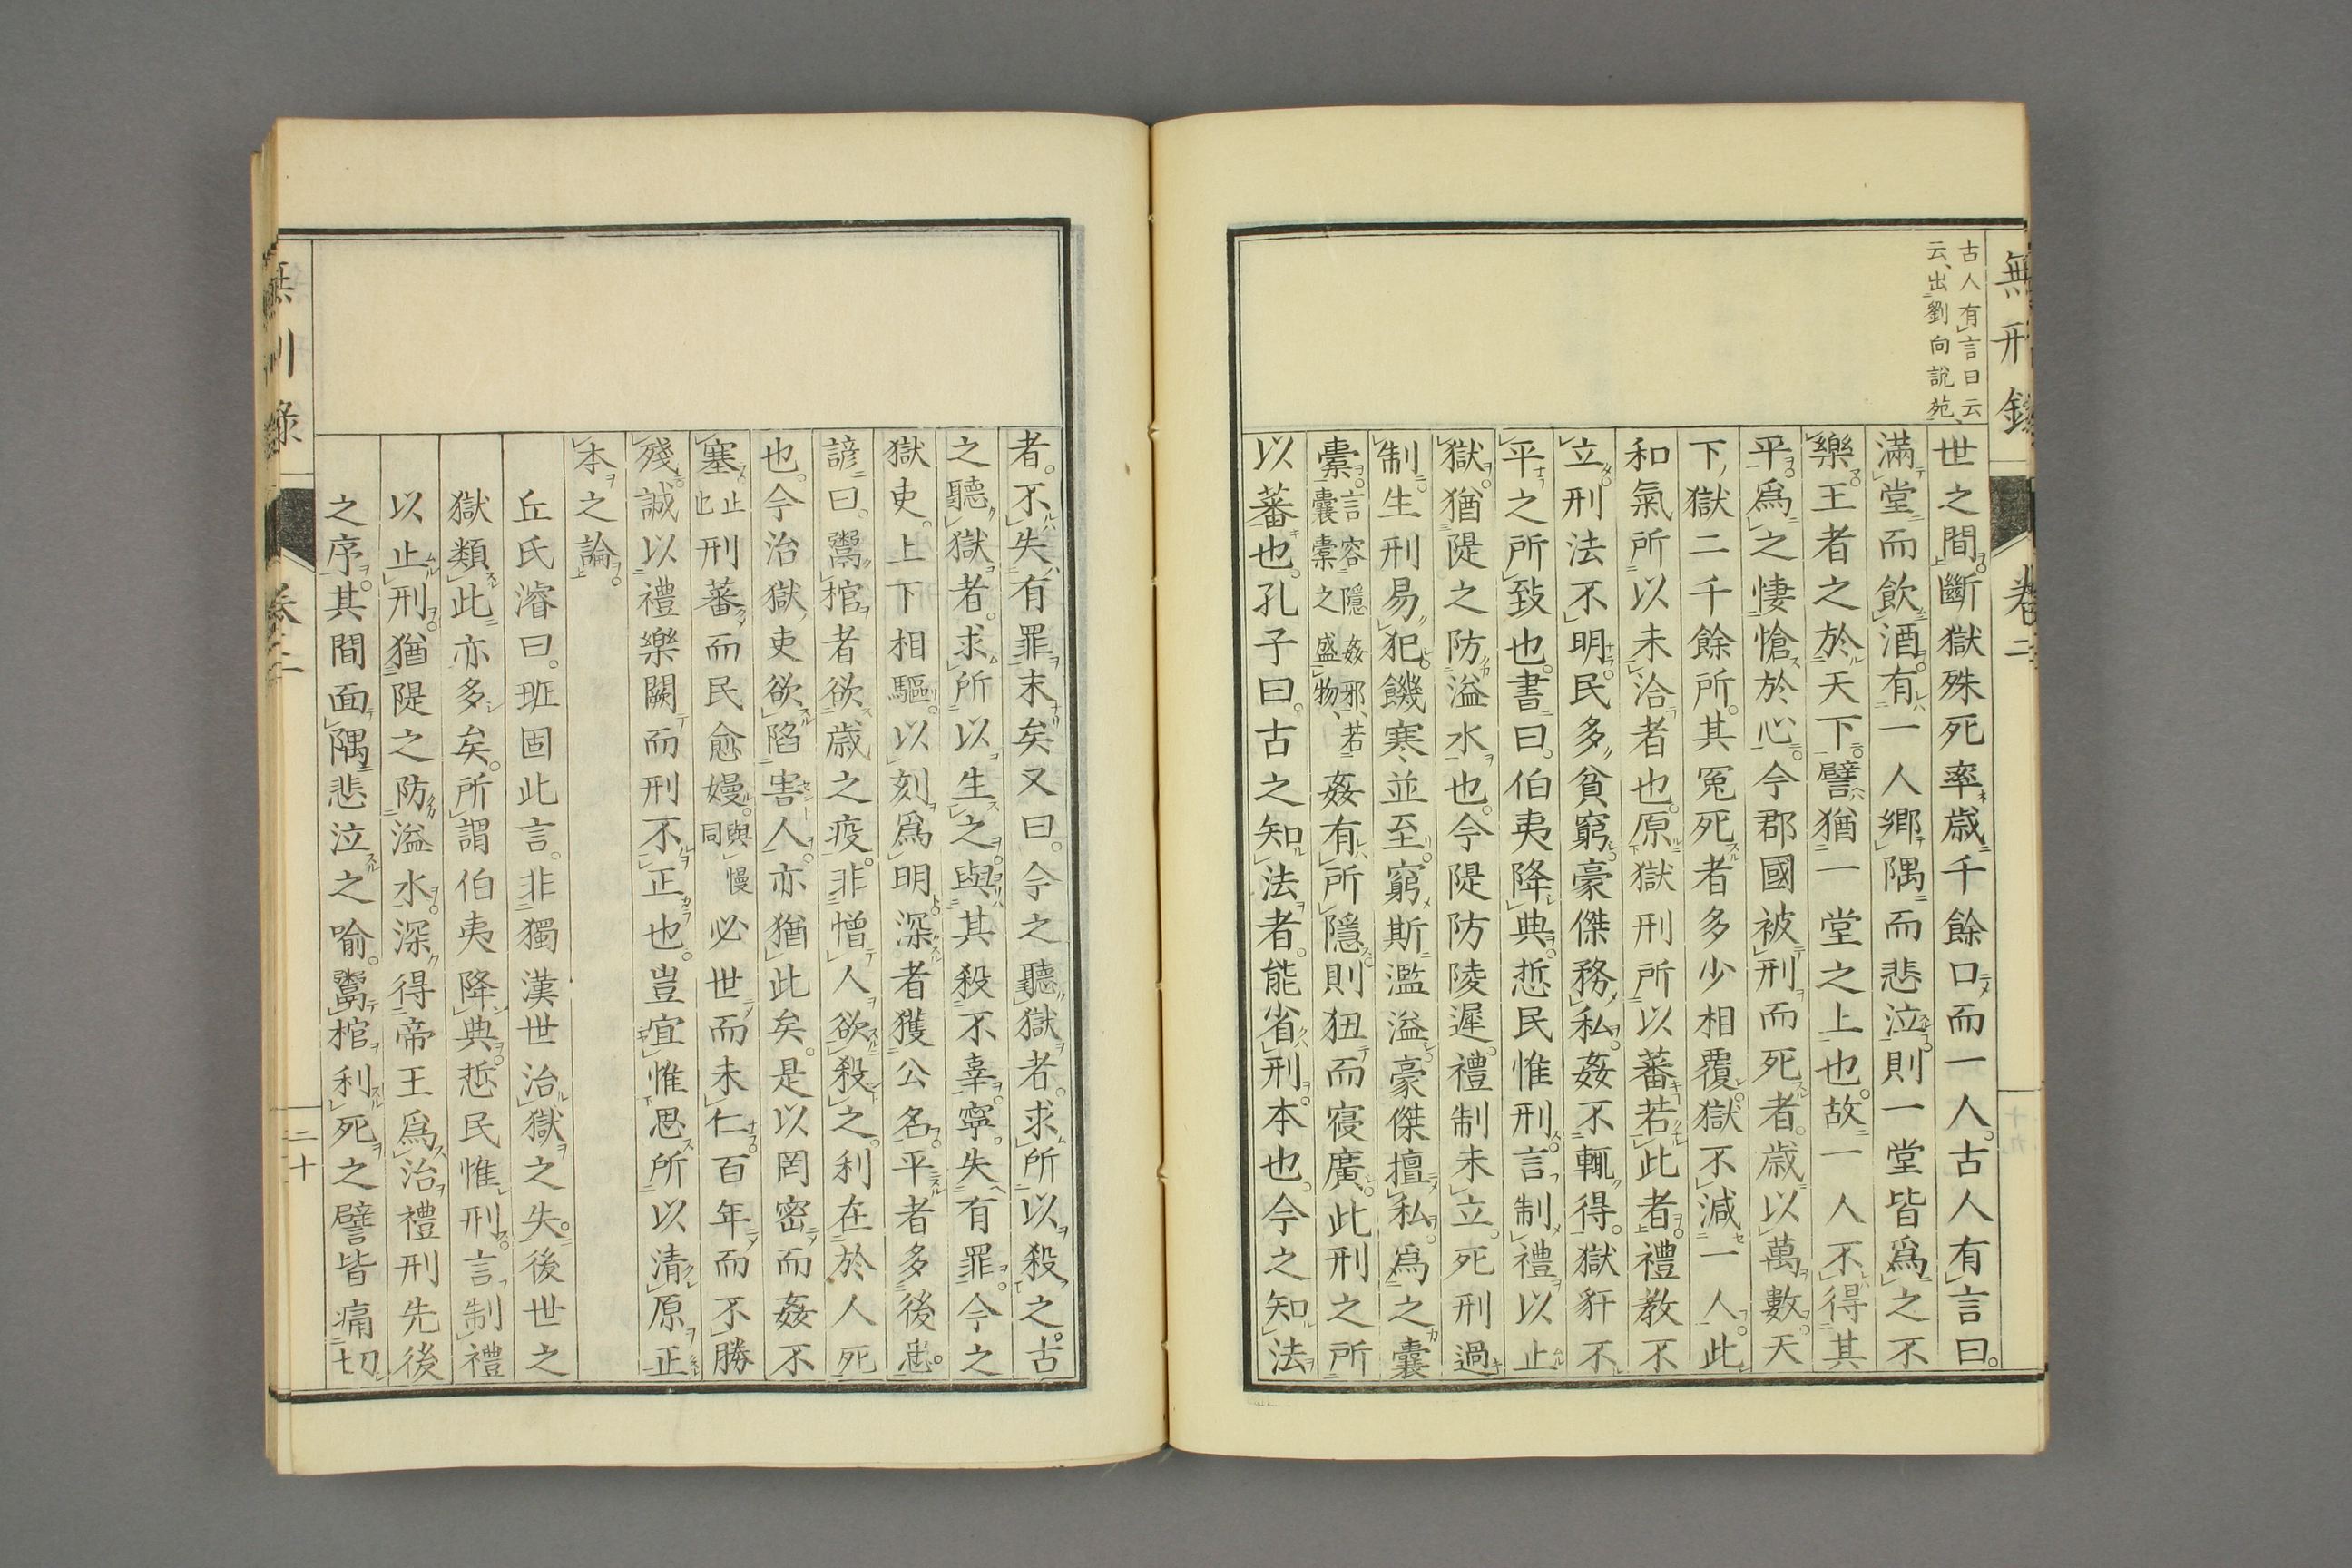 無刑録
卷二
十九
古人有言曰云
云、出劉向說苑、
世之間。斷獄殊死率歳千餘口而一人。古人有言曰。
滿堂而飲酒。有一人鄉隅而悲泣。則一堂皆爲之不
樂。王者之於天下。譬猶一堂之上也。故一人不得其
平。爲之悽愴於心。今郡國被刑而死者。歳以萬數。天
下獄二千餘所。其冤死者多少相覆。獄不減一人。此
和氣所以未洽者也。原獄刑所以蕃若此者。禮教不
立。刑法不明。民多貧窮。豪傑務私。姦不輒得。獄豻不
平之所致也。書曰。伯夷降典。悊民惟刑。言制禮以止
獄。猶隄之防溢水也。今隄防陵遲。禮制未立。死刑過
制。生刑易犯。饑寒並至。窮斯濫溢。豪傑擅私。爲之囊
橐。言容隱姦邪、若囊橐之盛物、姦有所隱。則狃而寖廣。此刑之所
以蕃也。孔子曰。古之知法者。能省刑。本也。今之知法
者。不失有罪。末矣。又曰。今之聽獄者。求所以殺之。古
之聽獄者。求所以生之。與其殺不辜。寧失有罪。今之
獄吏。上下相驅。以刻爲明。深者獲公名。平者多後患。
諺曰。鬻棺者欲歳之疫。非憎人欲殺之。利在於人死
也。今治獄吏欲陷害人。亦猶此矣。是以罔密而姦不
塞。止也刑蕃而民愈嫚。與慢同必世而未仁。百年而不勝
殘。誠以禮樂闕而刑不正也。豈宜惟思所以清原正
本之論。
丘氏濬曰。班固此言。非獨漢世治獄之失。後世之
獄類此亦多矣。所謂伯夷降典。悊民惟刑。言制禮
以止刑。猶隄之防溢水。深得帝王爲治禮刑先後
之序。其間面隅悲泣之喻。鬻棺利死之譬。皆痛切
無刑録
卷二
二十